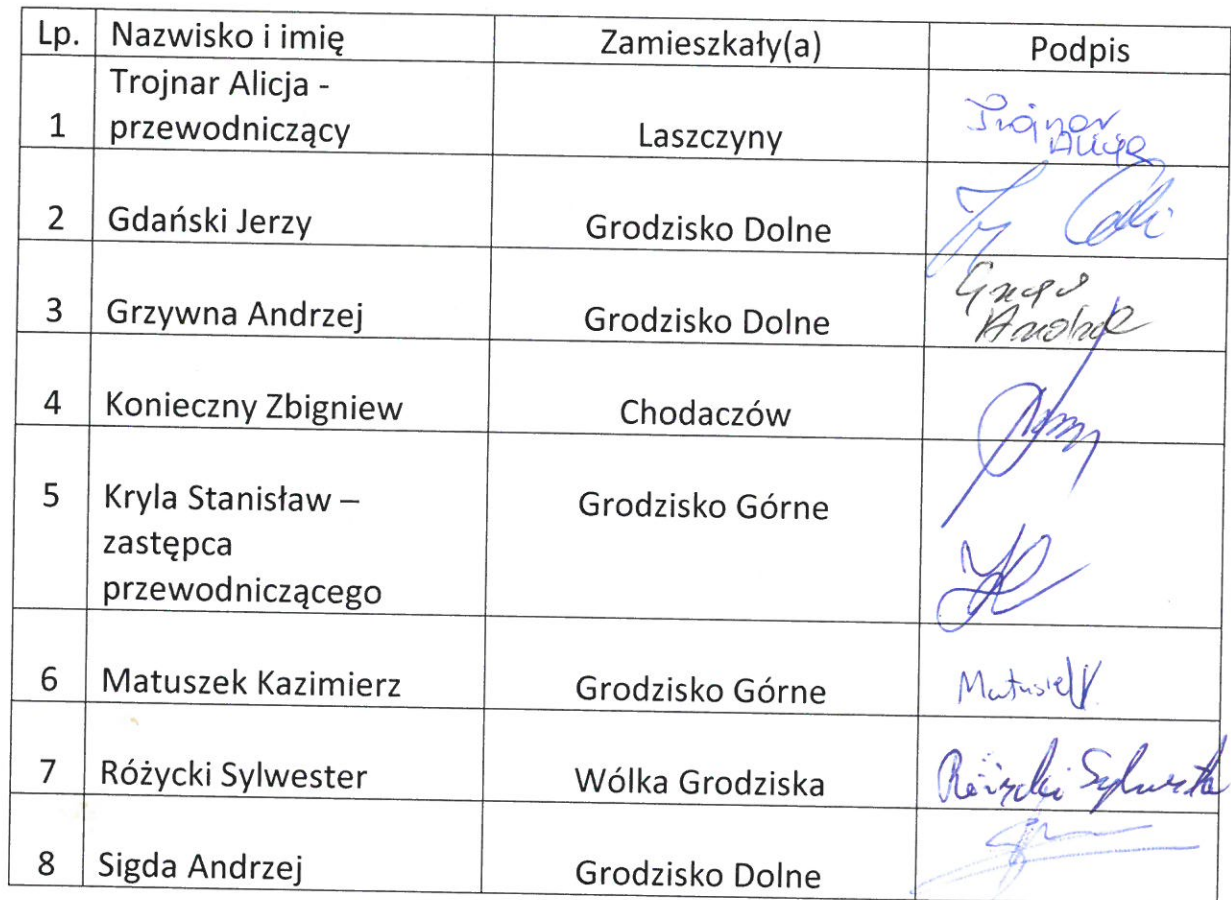 Lp. Nazwisko i imię Zamieszkały(a) Podpis
Trojnar Alicja -
1 przewodniczący Laszczyny Trojnar
Alicja
2 Gdański Jerzy Grodzisko Dolne
3 Grzywna Andrzej Grodzisko Dolne
4 Konieczny Zbigniew Chodaczów
5 Kryla Stanisław – Grodzisko Górne
zastępca
przewodniczącego
6 Matuszek Kazimierz Grodzisko Górne
7 Różycki Sylwester Wólka Grodziska Różycki Sylwester
8 Sigda Andrzej Grodzisko Dolne